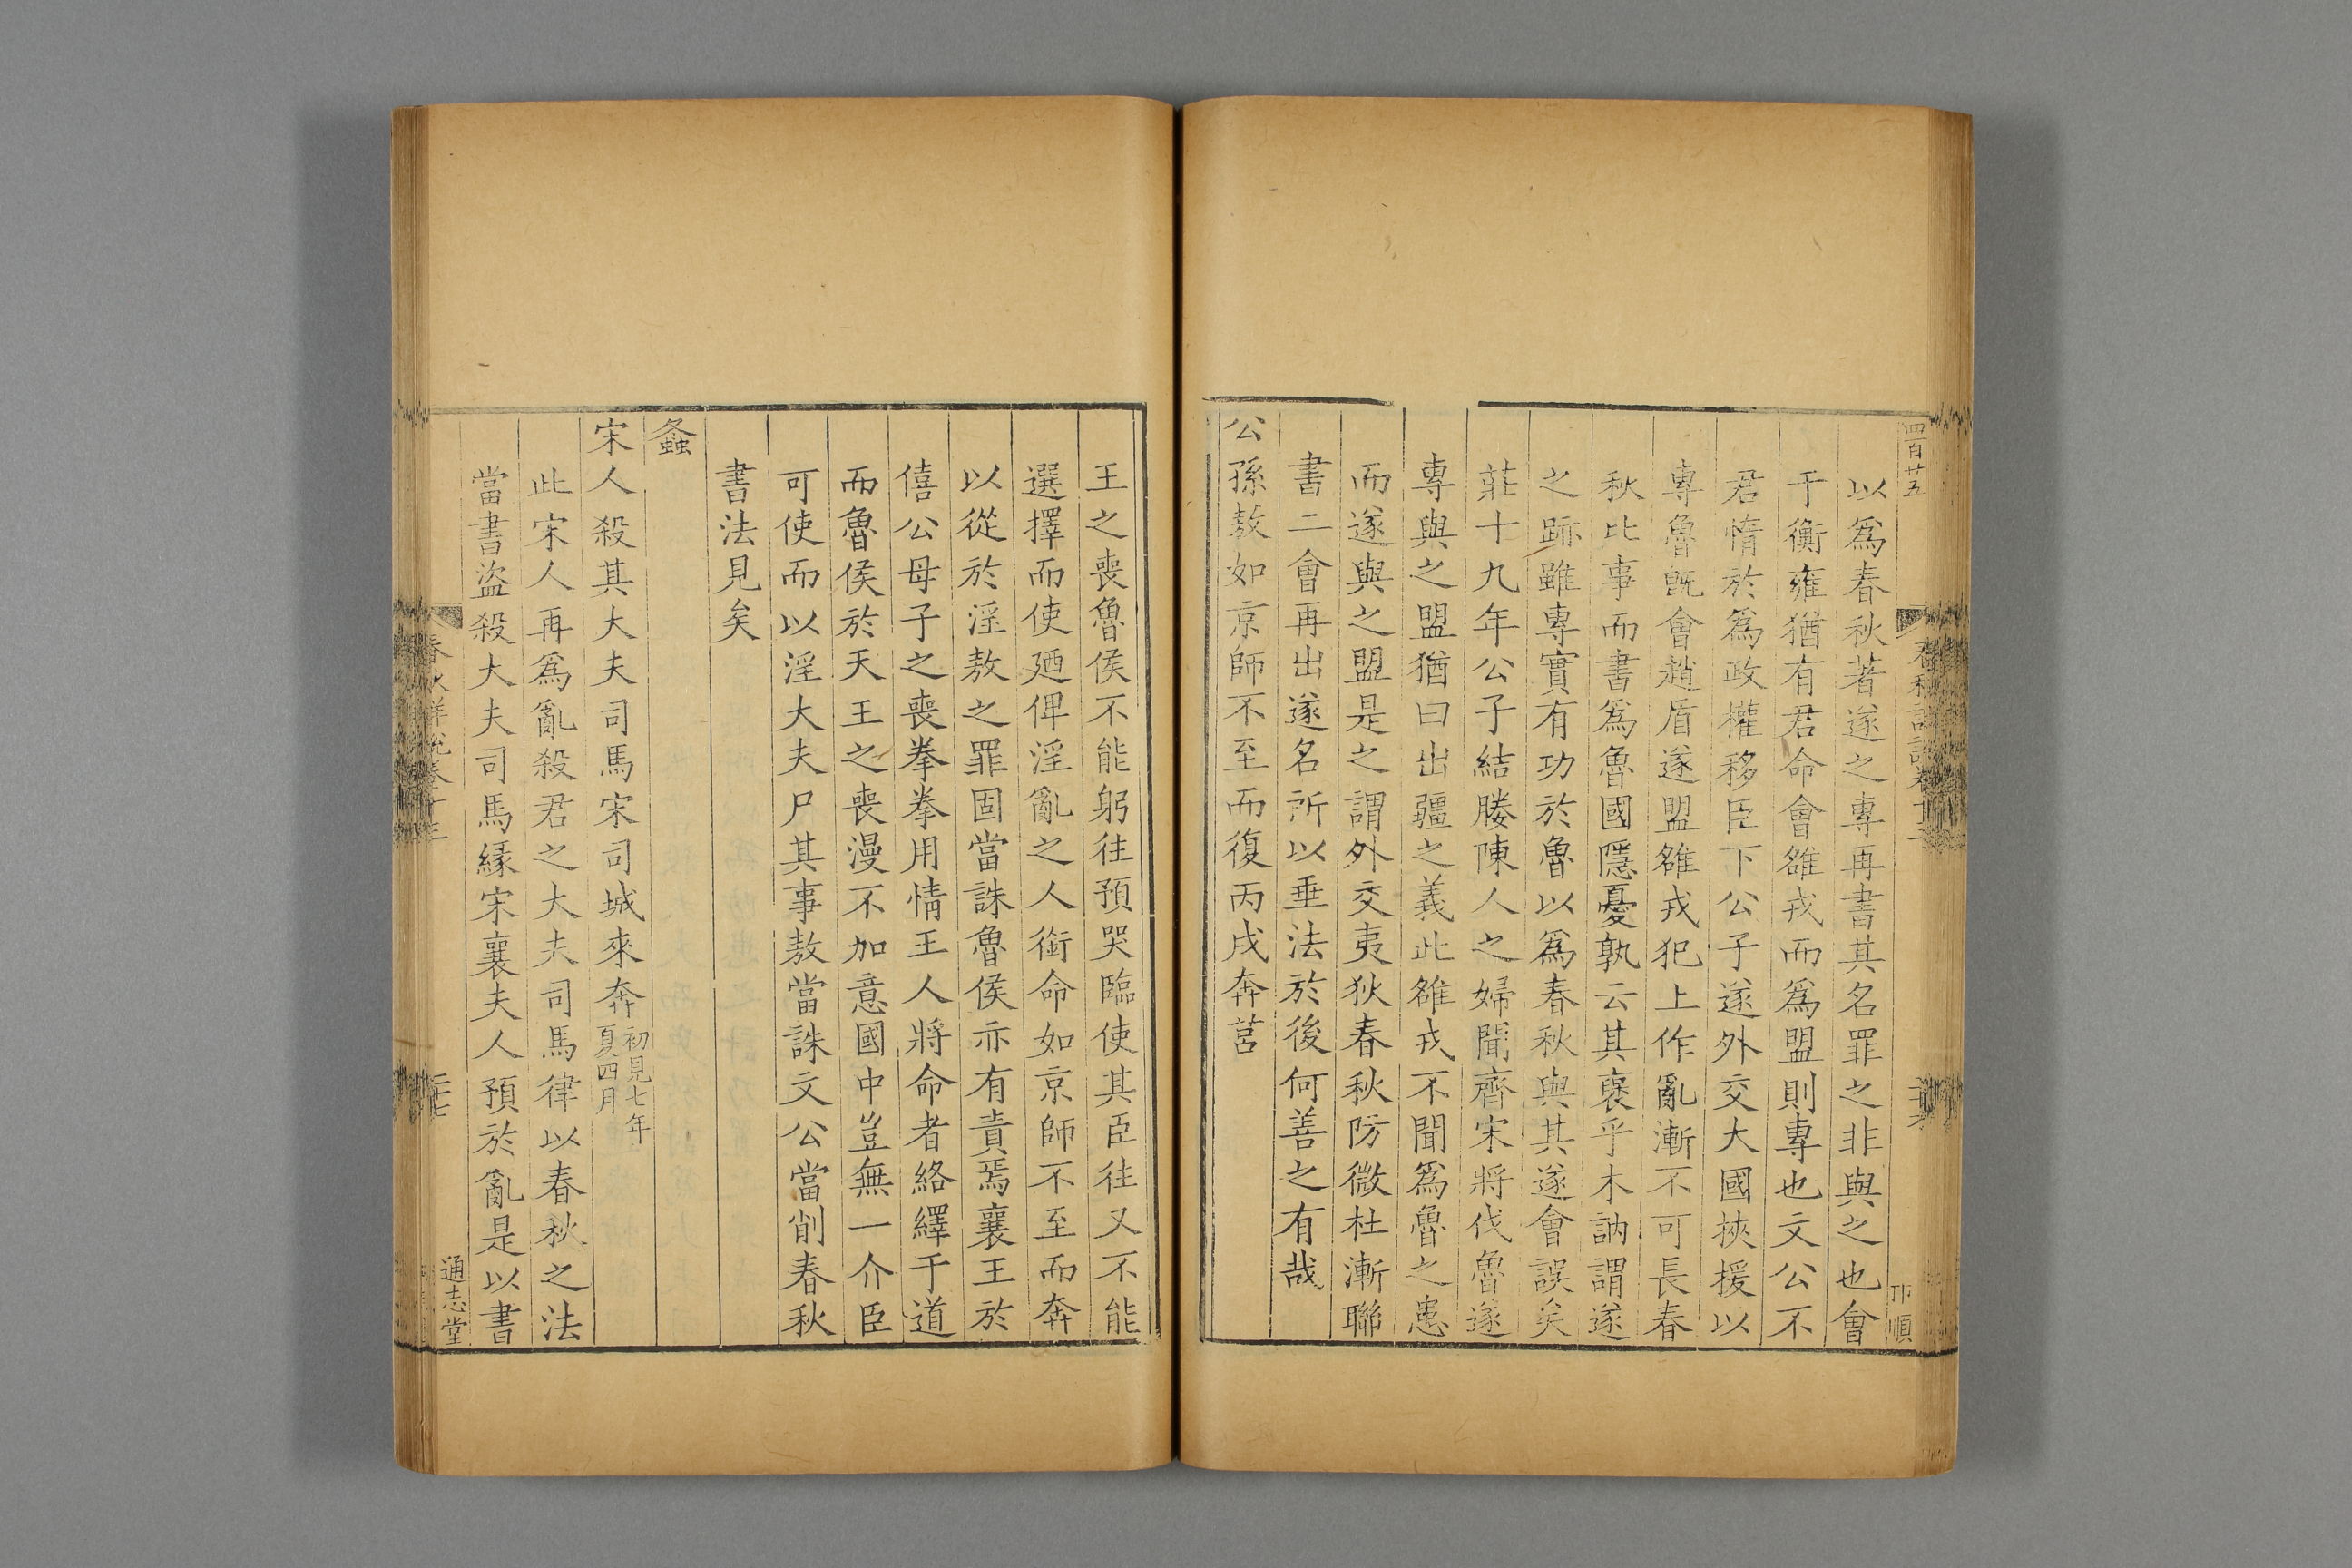 四百廿五
以爲春秋著遂之專再書其名罪之非與之也會
于衡雍猶有君命會雒戎而爲盟則專也文公不
君惰於爲政權移臣下公子遂外交大國挾援以
專魯旣會趙盾遂盟雒戎犯上作亂漸不可長春
秋比事而書爲魯國隱憂孰云其襃乎木訥謂遂
之跡雖專實有功於魯以爲春秋與其遂會誤矣
莊十九年公子結媵陳人之婦聞齊宋將伐魯遂
專與之盟猶曰出疆之義此雒戎不聞爲魯之患
而遂與之盟是之謂外交夷狄春秋防微杜漸聯
書二會再出遂名所以垂法於後何善之有哉
公孫敖如京師不至而復丙戌奔莒
王之喪魯侯不能躬往預哭臨使其臣往又不能
選擇而使廼俾淫亂之人銜命如京師不至而奔
以從於淫敖之罪固當誅魯侯亦有責焉襄王於
僖公母子之喪拳拳用情王人將命者絡繹于道
而魯侯於天王之喪漫不加意國中豈無一介臣
可使而以淫大夫尸其事敖當誅文公當削春秋
書法見矣
螽
宋人殺其大夫司馬宋司城來奔初見七年夏四月
此宋人再爲亂殺君之大夫司馬律以春秋之法
當書盜殺大夫司馬緣宋襄夫人預於亂是以書
春秋詳說卷十三
二十七
通志堂